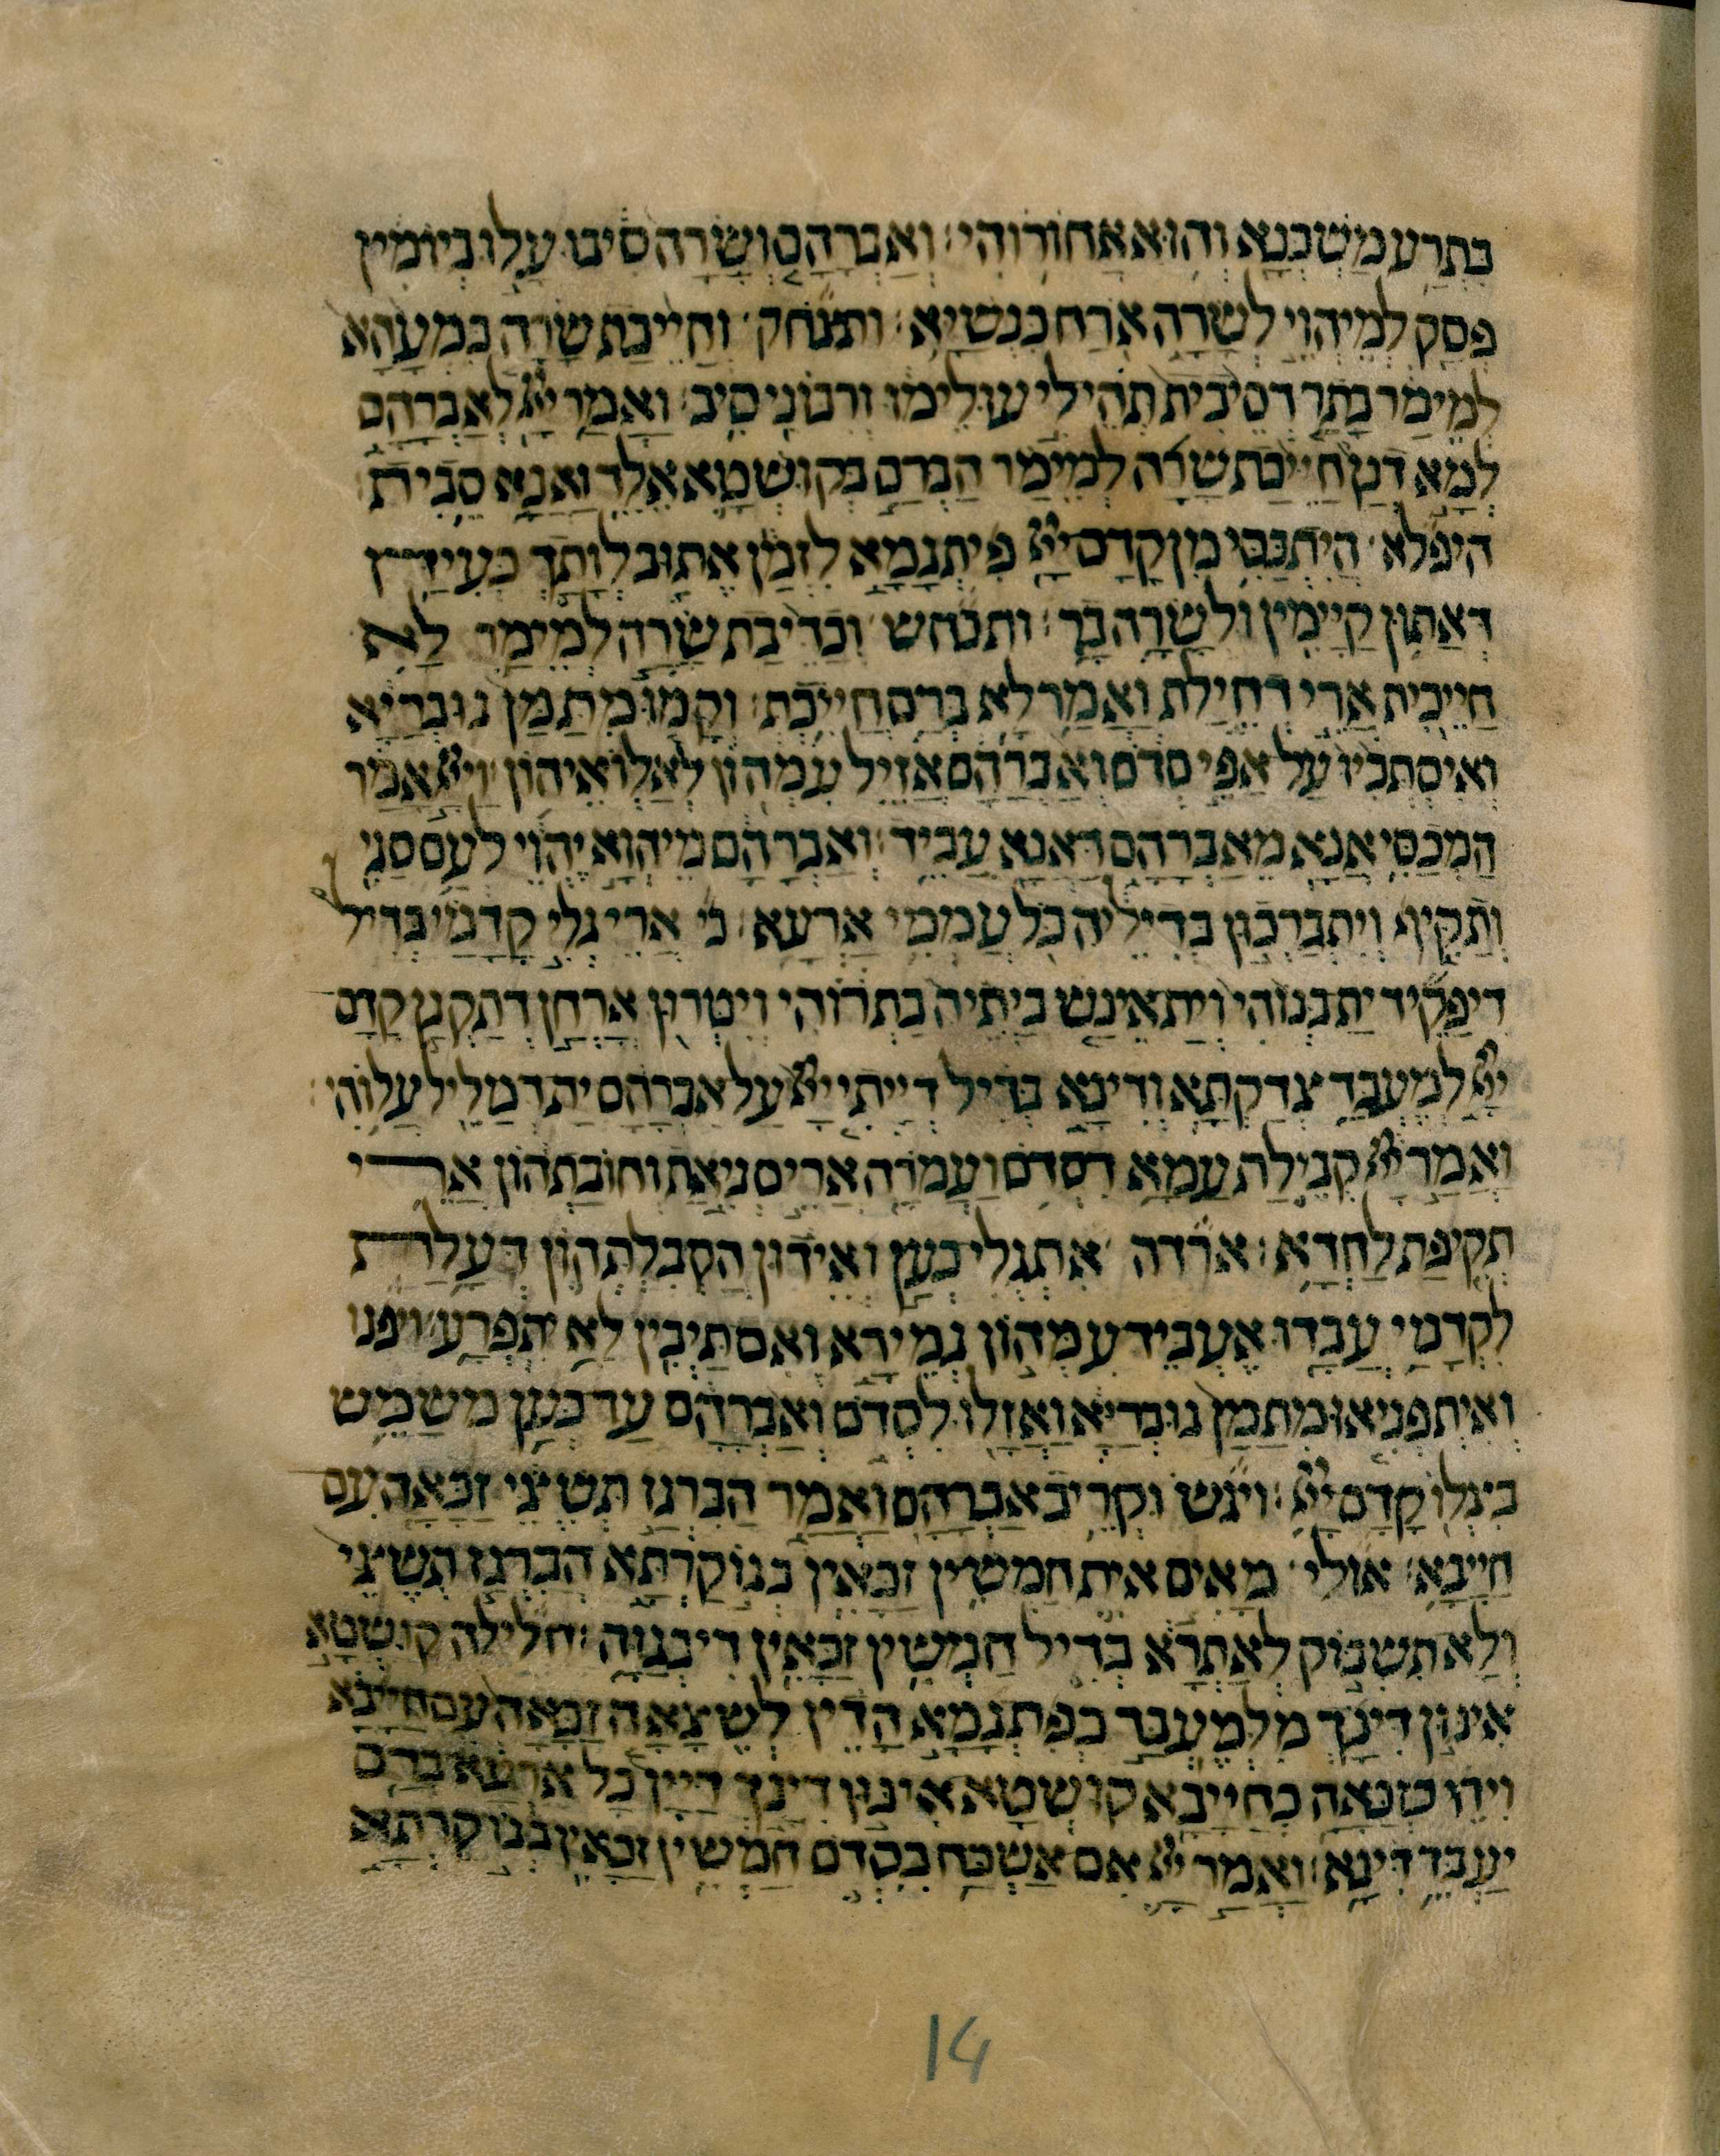 בִּתְרַע מַשְׁכְּנָא וְהוּא אֲחוֹרוֹהִי׃ וְאַבְרָהָם וְשָׂרָה סִיבוּ עָלוּ בְיוֹמִין
פְּסַק לְמֶיהֱוֵי לְשָׂרָה אֹרַח כִּנְשַׁיָּא׃ ותצחק׳ וְחַיֵּיכַת שָׂרָה בִּמְעַהָא
לְמֵימַר בָּתַר דְּסֵיבִית תְּהֵי לִי עוּלֵימוּ וְרִבּוֹנִי סִיב׃ וַאֲמַר יְיָ לְאַבְרָהָם
לְמָא דְנָן חַיֵּיכַת שָׂרָה לְמֵימַר הַבְרַם בְּקוּשְׁטָא אֵלֵד וַאֲנָא סֵיבִית׃
היפלא׳ הֲיִתְכַּסֵּי מִן קֳדָם יְיָ פִּיתְגָמָא לִזְמַן אֵתוּב לְוָתָךְ כְּעִידָּן
דְּאַתּוּן קַיָּימִין וּלְשָׂרָה בַר׃ ותכחש׳ וְכַדֵּיבַת שָׂרָה לְמֵימַר לָא
חַיֵּיכִית אֲרֵי דְּחֵילַת וַאֲמַר לָא בְּרַם חַיֵּיכְתְּ׃ וְקָמוּ מִתַּמָּן גּוּבְרַיָּא
וְאִיסְתְּכִיוּ עַל אַפֵּי סְדֹם וְאַבְרָהָם אָזֵיל עִמְּהוֹן לְאַלְוָאֵיהוֹן׃ וַייָ אֲמַר
הַמְכַסֵּי אֲנָא מֵאַבְרָהָם דַּאֲנָא עָבֵיד׃ וְאַבְרָהָם מֶיהֱוָא יֶהֱוֵי לְעַם סַגִּי
וְתַקִּיף וְיִתְבָּרְכוּן בְּדִילֵיהּ כֹּל עַמְמֵי אַרְעָא׃ כי׳ אֲרֵי גְלֵי קֳדָמַי בְּדִיל
דִּיפַקֵּיד יָת בְּנוֹהִי וְיָת אֱינָשׁ בֵּיתֵיהּ בַּתְרוֹהִי וְיִטְּרוּן אֹרְחָן דְּתָקְנָן קֳדָם
יְיָ לְמֶעְבַּד צְדַקְתָּא וְדִינָא בְּדִיל דְּיַיתֵי יְיָ עַל אַבְרָהָם יָת דְּמַלֵּיל עֲלוֹהִי׃
וַאֲמַר יְיָ קְבִילַת עַמָּא דִסְדֹם וַעֲמֹרָה אֲרֵי סְגִיאַת וְחוֹבַתְהוֹן אֲרֵי
תְּקֵיפַת לַחְדָּא׃ ארדה׳ אִתְגְּלֵי כְּעַן וְאֵידוּן הַקְבִלְתְּהוֹן דְּעָלַת
לִקְדָמַי עֲבַדוּ אֶעְבֵּיד עִמְּהוֹן גְּמֵירָא וְאִם תָּיְבִין לָא אֶתְפְּרַע׃ ויפנו
וְאִיתְפְּנִיאוּ מִתַּמָּן גּוּבְרַיָּא וַאֲזַלוּ לִסְדֹם וְאַבְרָהָם עַד כְּעַן מְשַׁמֵּישׁ
בִּצְלוֹ קֳדָם יְיָ׃ ויגש׳ וּקְרֵיב אַבְרָהָם וַאֲמַר הַבִרְגַז תְּשֵׁיצֵי זַכָּאָה עִם
חַיָּבָא׃ אולי׳ מָאִים אִית חַמְשִׁין זַכָּאִין בְּגוֹ קַרְתָּא הַבִרְגַז תְּשֵׁיצֵי
וְלָא תִשְׁבּוֹק לְאַתְרָא בְּדִיל חַמְשִׁין זַכָּאִין דִּיבְגַוַּהּ׃ חלילה קוּשְׁטָא
אִינּוּן דִּינָךְ מִלְּמֶעְבַּד כְּפִתְגָמָא הָדֵין לְשֵׁיצָאָה זַכָּאָה עִם חַיָּיבָא
וִיהֵי זַכָּאָה כְּחַיָּיבָא קוּשְׁטָא אִינּוּן דִּינָךְ דַּיָּין כָּל אַרְעָא בְּרַם
יַעְבֵּד דִּינָא׃ וַאֲמַר יְיָ אִם אַשְׁכַּח בִּסְדֹם חַמְשִׁין זַכָּאִין בְּגוֹ קַרְתָּא
14